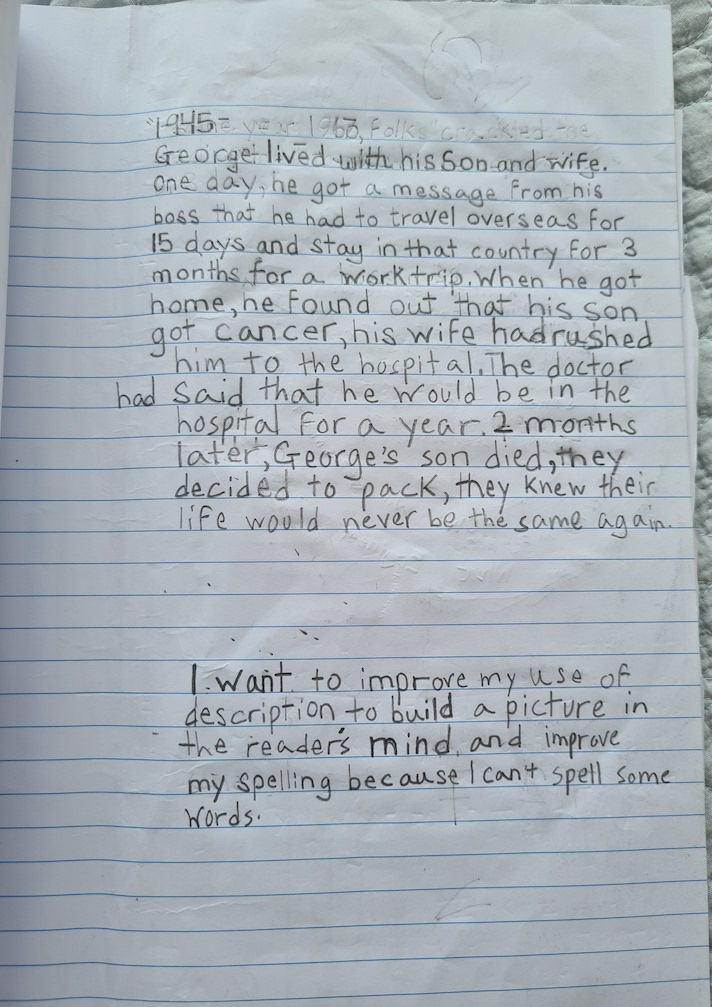 1945 year 1960, Folks cracked the
George lived with his Son and wife.
One day, he got a message from his
boss that he had to travel overseas for
15 days and stay in that country for 3
months for a work trip. When he got
home, he found out that his son
got cancer, his wife had rushed
him to the hospital. The doctor
had said that he would be in the
hospital for a year. 2 months
later, George's son died, they
decided to pack, they knew their
life would never be the same again.
I want to improve my use of
description to build a picture in
the reader's mind and improve
my spelling because I can't spell some
words.